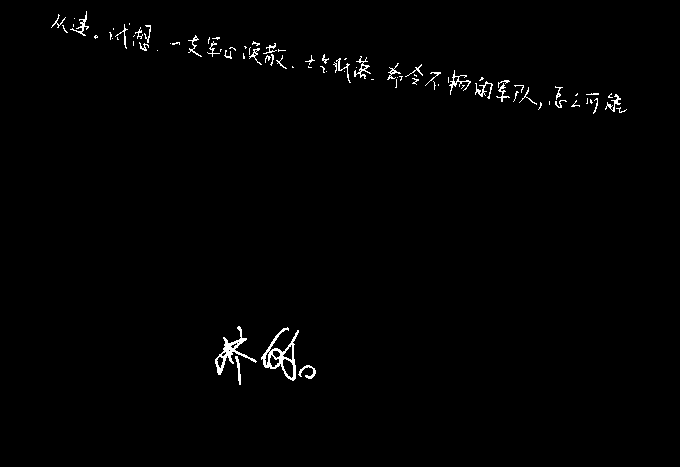 从速。试想、一支军心涣散、士气低落、希令不畅的军队，怎么可能
的。